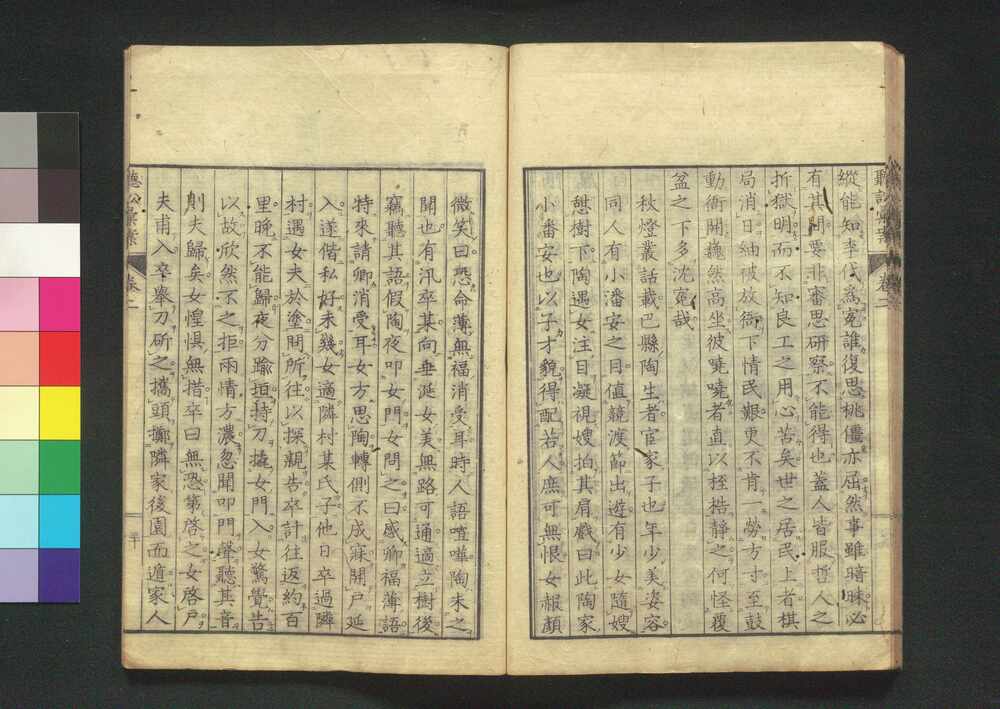 縱能知李代爲冤誰復思桃僵亦屈然事雖暗昧必
有其間要非審思研察不能得也蓋人皆服哲人之
折獄明而不知良工之用心苦矣世之居民上者棋
局消日紬被放衙下情民艱更不肯一勞方寸至鼓
動衙開巍然高坐彼嘵嘵者直以桎梏靜之何怪覆
盆之下多沈冤哉
秋燈叢話載巴縣陶生者宦家子也年少美姿容
同人有小潘安之目値競渡節出遊有少女隨嫂
憩樹下陶遇女注目凝視嫂拍其肩戲曰此陶家
小番安也以子才貌得配若人庶可無恨女赧顏
微笑曰恐命薄無福消受耳時人語喧嘩陶未之
聞也有汛卒某向垂涎女美無路可通適立樹後
竊聽其語假陶夜叩女門女問之曰感卿福薄語
特來請卿消受耳女方思陶轉側不成寐開戶延
入遂偕私好未幾女適隣村某氏子他日卒過隣
村遇女夫於塗問所往以探親告卒計往返約百
里晚不能歸夜分踰垣持刀撬女門入女驚覺告
以故欣然不之拒兩情方濃忽聞叩門聲聽其音
則夫歸矣女惶懼無措卒曰無恐第啓之女啓戶
夫甫入卒舉刀斫之攜頭擲隣家後園而遁家人
聽訟彙案
卷二
二十